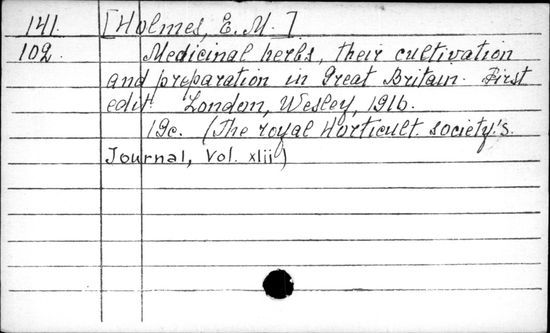 141. [Holmes, E. M.]
102 Medicinal herbs, their cultivation
and preparation in Great Britain. First
edit. London, Wesley, 1916.
19c. (The royal Horticult. society's.
Journal, Vol. xlii)